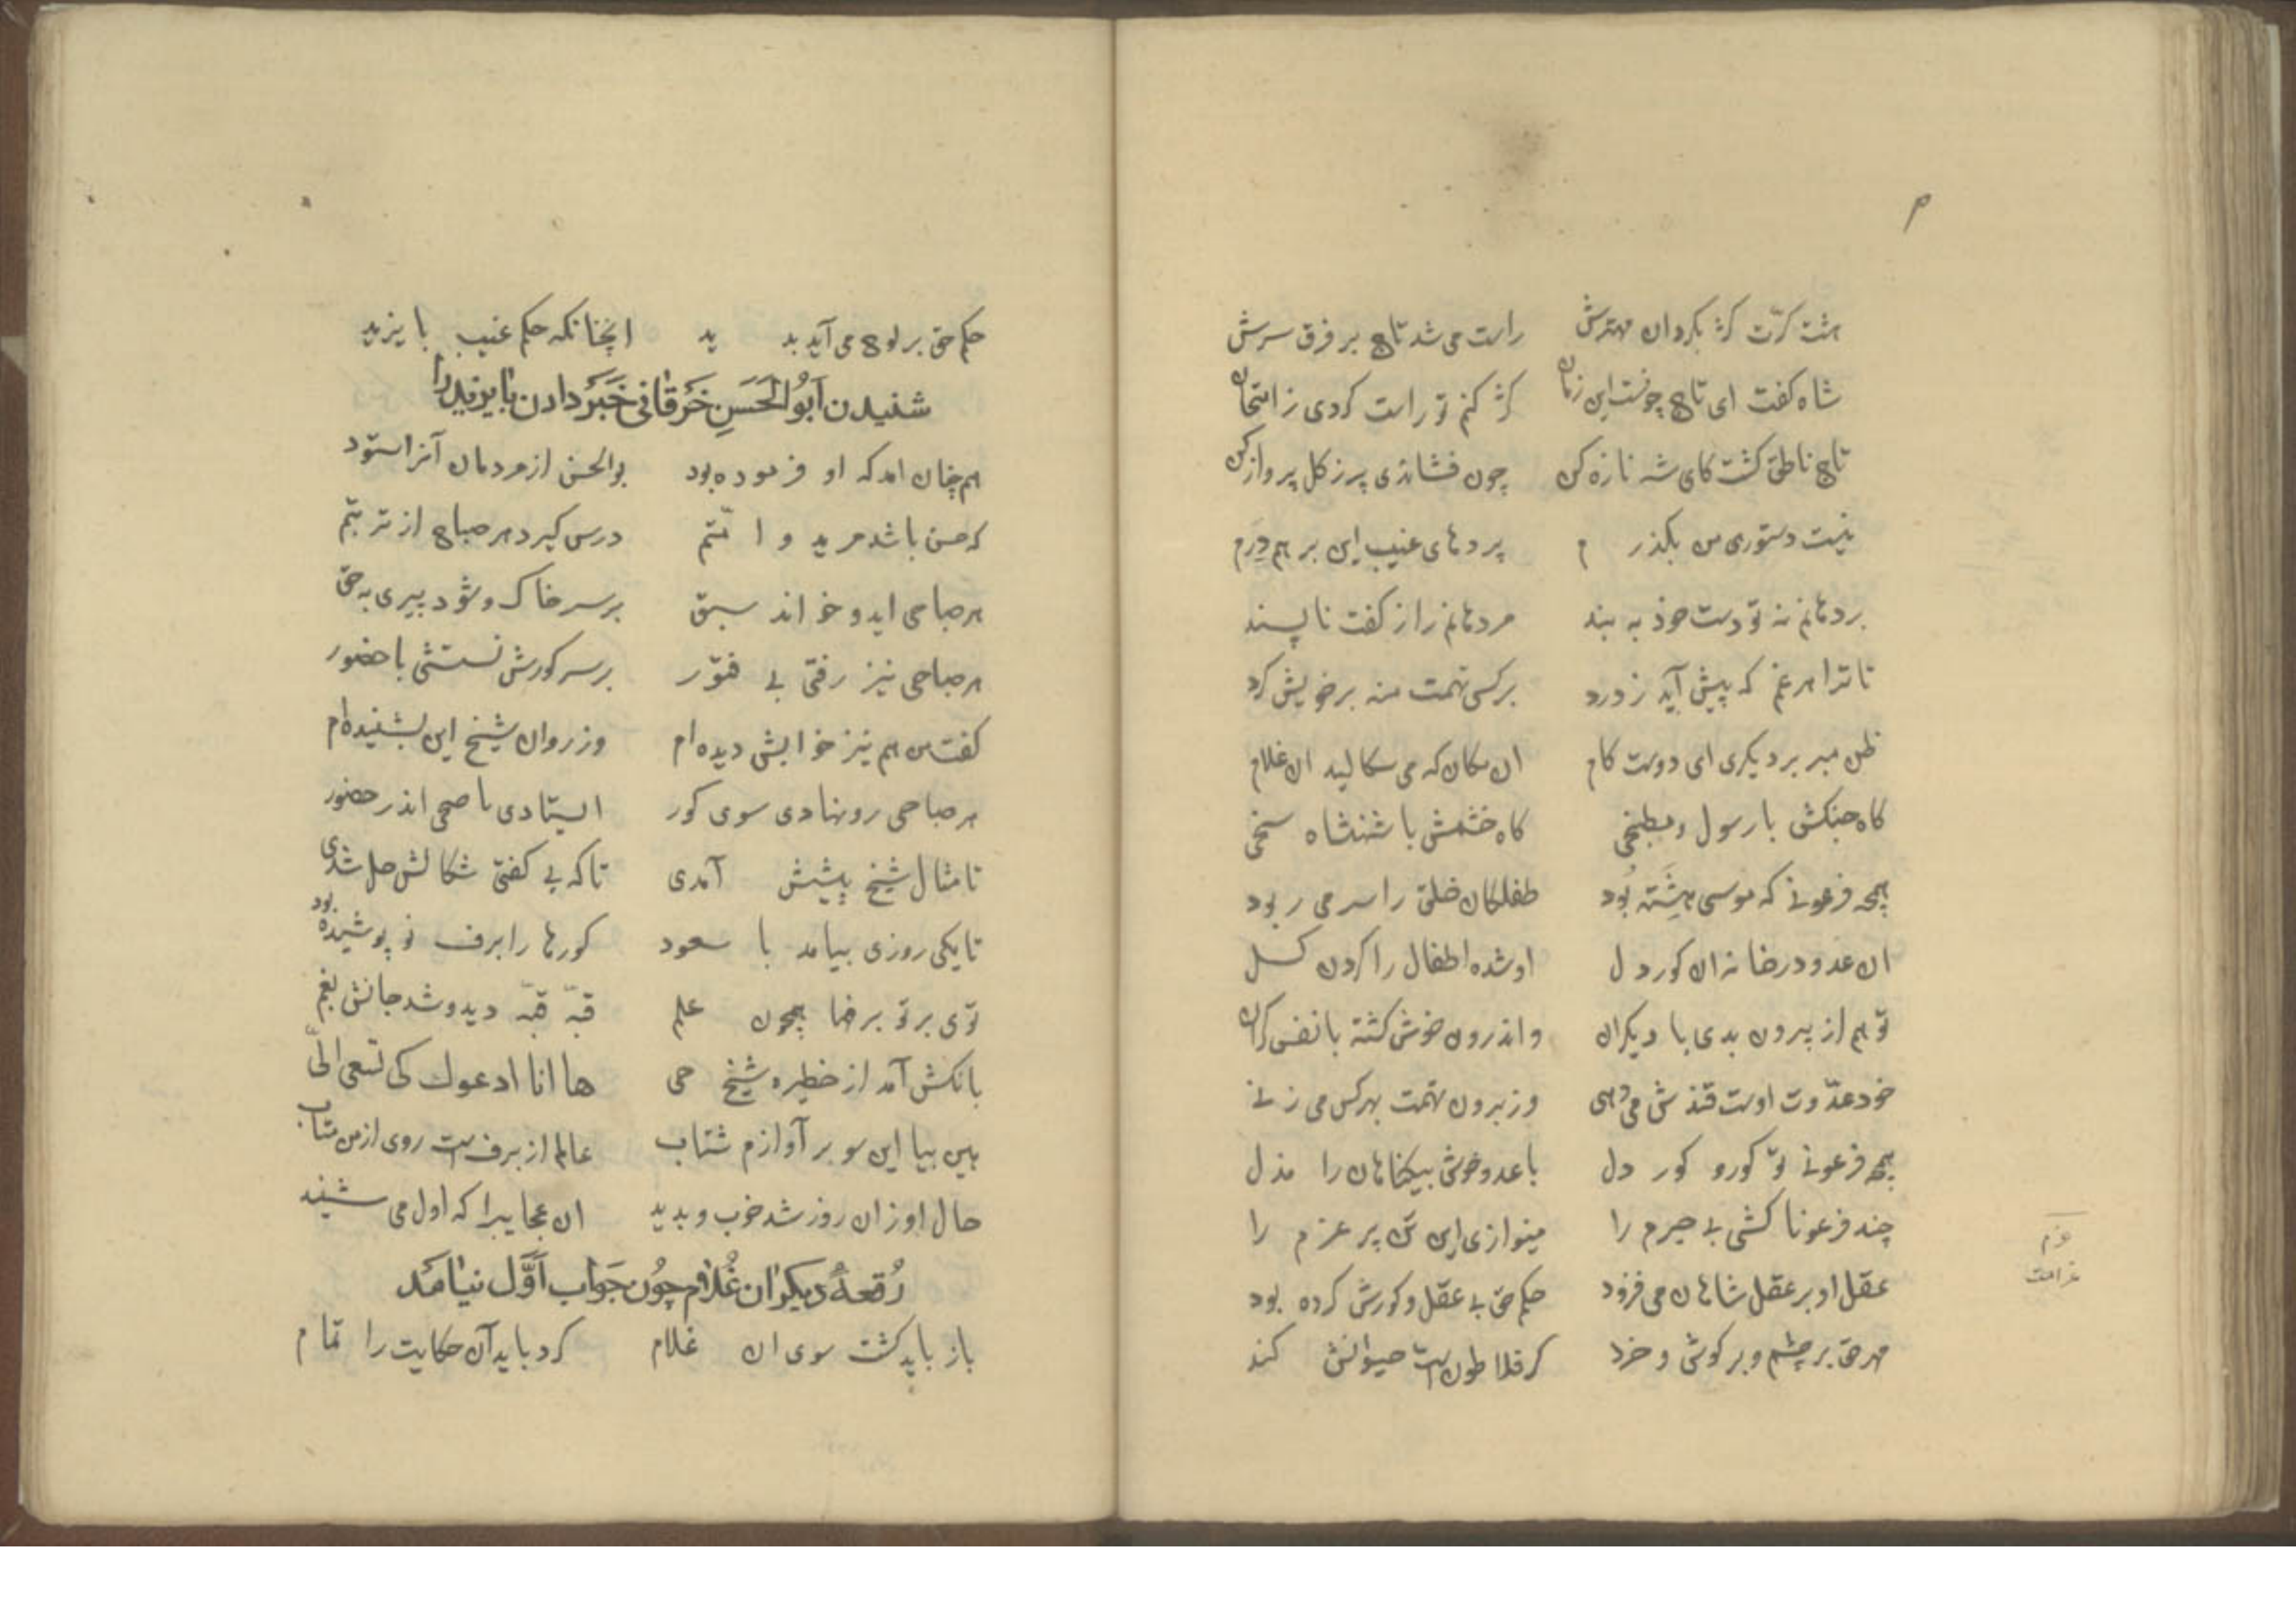 م
هشت کرّت کژ بکردان مهترش راست می شد تاج بر فرق سرش
شاه کفت ای تاج چونست این زمان کژ کنم تو راست کردی ز امتحان
تاج ناطق کشت کای شه نازه کن چون فشاندی پر ز کل پرواز کن
نیست دستوری من بکذرم پردهای غیب این بر هم دَرم
بر دهانم نه تو دست خود به بند مر دهانم را ز کفت ناپسند
تا ترا هر غم که پیش آید ز درد بر کسی تهمت منه بر خویش کرد
ظن مبر بر دیکری ای دوست کام ان مکان که می سکالید ان غلام
کاه جنکش با رسول و مطبخی کاه خشمش با شنشاه سخی
همچه فرعونی که موسی هِشته بُود طفلکان خلق را سر می ربود
ان عدو در خانه ان کور دل او شده اطفال را کردن کسل
تو هم از بیرون بدی با دیکران و اندرون خوش کشته با نفس کران
خود عدّوت اوست قندش می دهی وز برون تهمت بهر کس می زنی
همچه فرعونی تو کور و کور دل با عدو خوش بیکناهان را مذل
چند فرعونا کشی بی جرم را مینوازی این تن پر غرم را
غرم
غرامت
عقل او بر عقل شاهان می فزود حکم حق بی عقل و کورش کرده بود
مهر حق بر چشم و بر کوش و خرد کر فلاطون است حیوانش کند
حکم حق بر لوح می آید بدید انچنانکه حکم غیب بایزید
شنیدن اَبُو الحَسَنِ خَرَقانی خَبَر دادن بایزید را
هم چنان امد که او فرموده بود بو الحسن از مردمان آنرا ستود
که حسن باشد مرید و امّتم درس کیرد هر صباح از تربتم
هر صباحی اید و خواند سبق بر سر خاک و شود پیری به حق
هر صباحی تیز رفتی بی فتور بر سر کورش نسستثی با حضور
کفت من هم نیز خوابش دیده ام وز روان شیخ این بشنیده ام
هر صباحی رو نهادی سوی کور ایستادی تا ضحی اندر حضور
تا مثال شیخ پیشش آمدی تا که بی کفتی شکالش حل شدی
تا یکی روزی بیامد با سعود کورها را برف نو پوشیده بود
توی بر تو برفها همچون علم قبّه قبّه دید و شد جانش بغم
بانکش آمد از خطیره شیخ حی ها انا ادعوک کی تسعی الیّ
هین بیا این سو بر آوازم شتاب عالم از برفست روی از من متاب
حال او زان روز شد خوب و بدید ان عجایبرا که اول می شنید
رُقعهٔ دیکر ان غُلام چُون جَواب اَوَّل نیامَد
باز باید کشت سوی ان غلام کرد باید آن حکایت را تمام